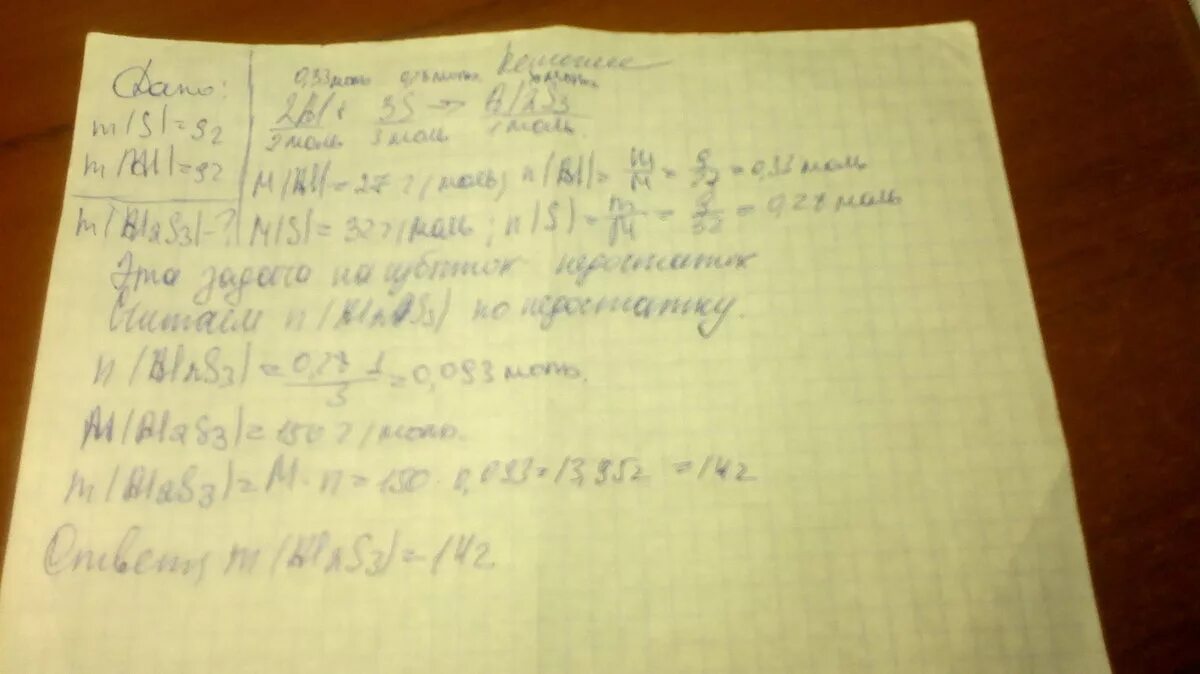 Дано:
m(S)=9г
m(Al)=9г
m(Al2S3)-?
Решение
0,33моль 0,28моль
2Al + 3S → Al2S3
2моль 3моль 1моль
M(Al)=27г/моль; n(Al)=m/M=9/27=0,33моль
M(S)=32г/моль; n(S)=m/M=9/32=0,28моль
Эта задача на избыток недостаток
Считаем n(Al2S3) по недостатку.
n(Al2S3)=0,28·1/3=0,093моль.
M(Al2S3)=150г/моль.
m(Al2S3)=M·n=150·0,093=13,95г =14г
Ответ: m(Al2S3)=14г